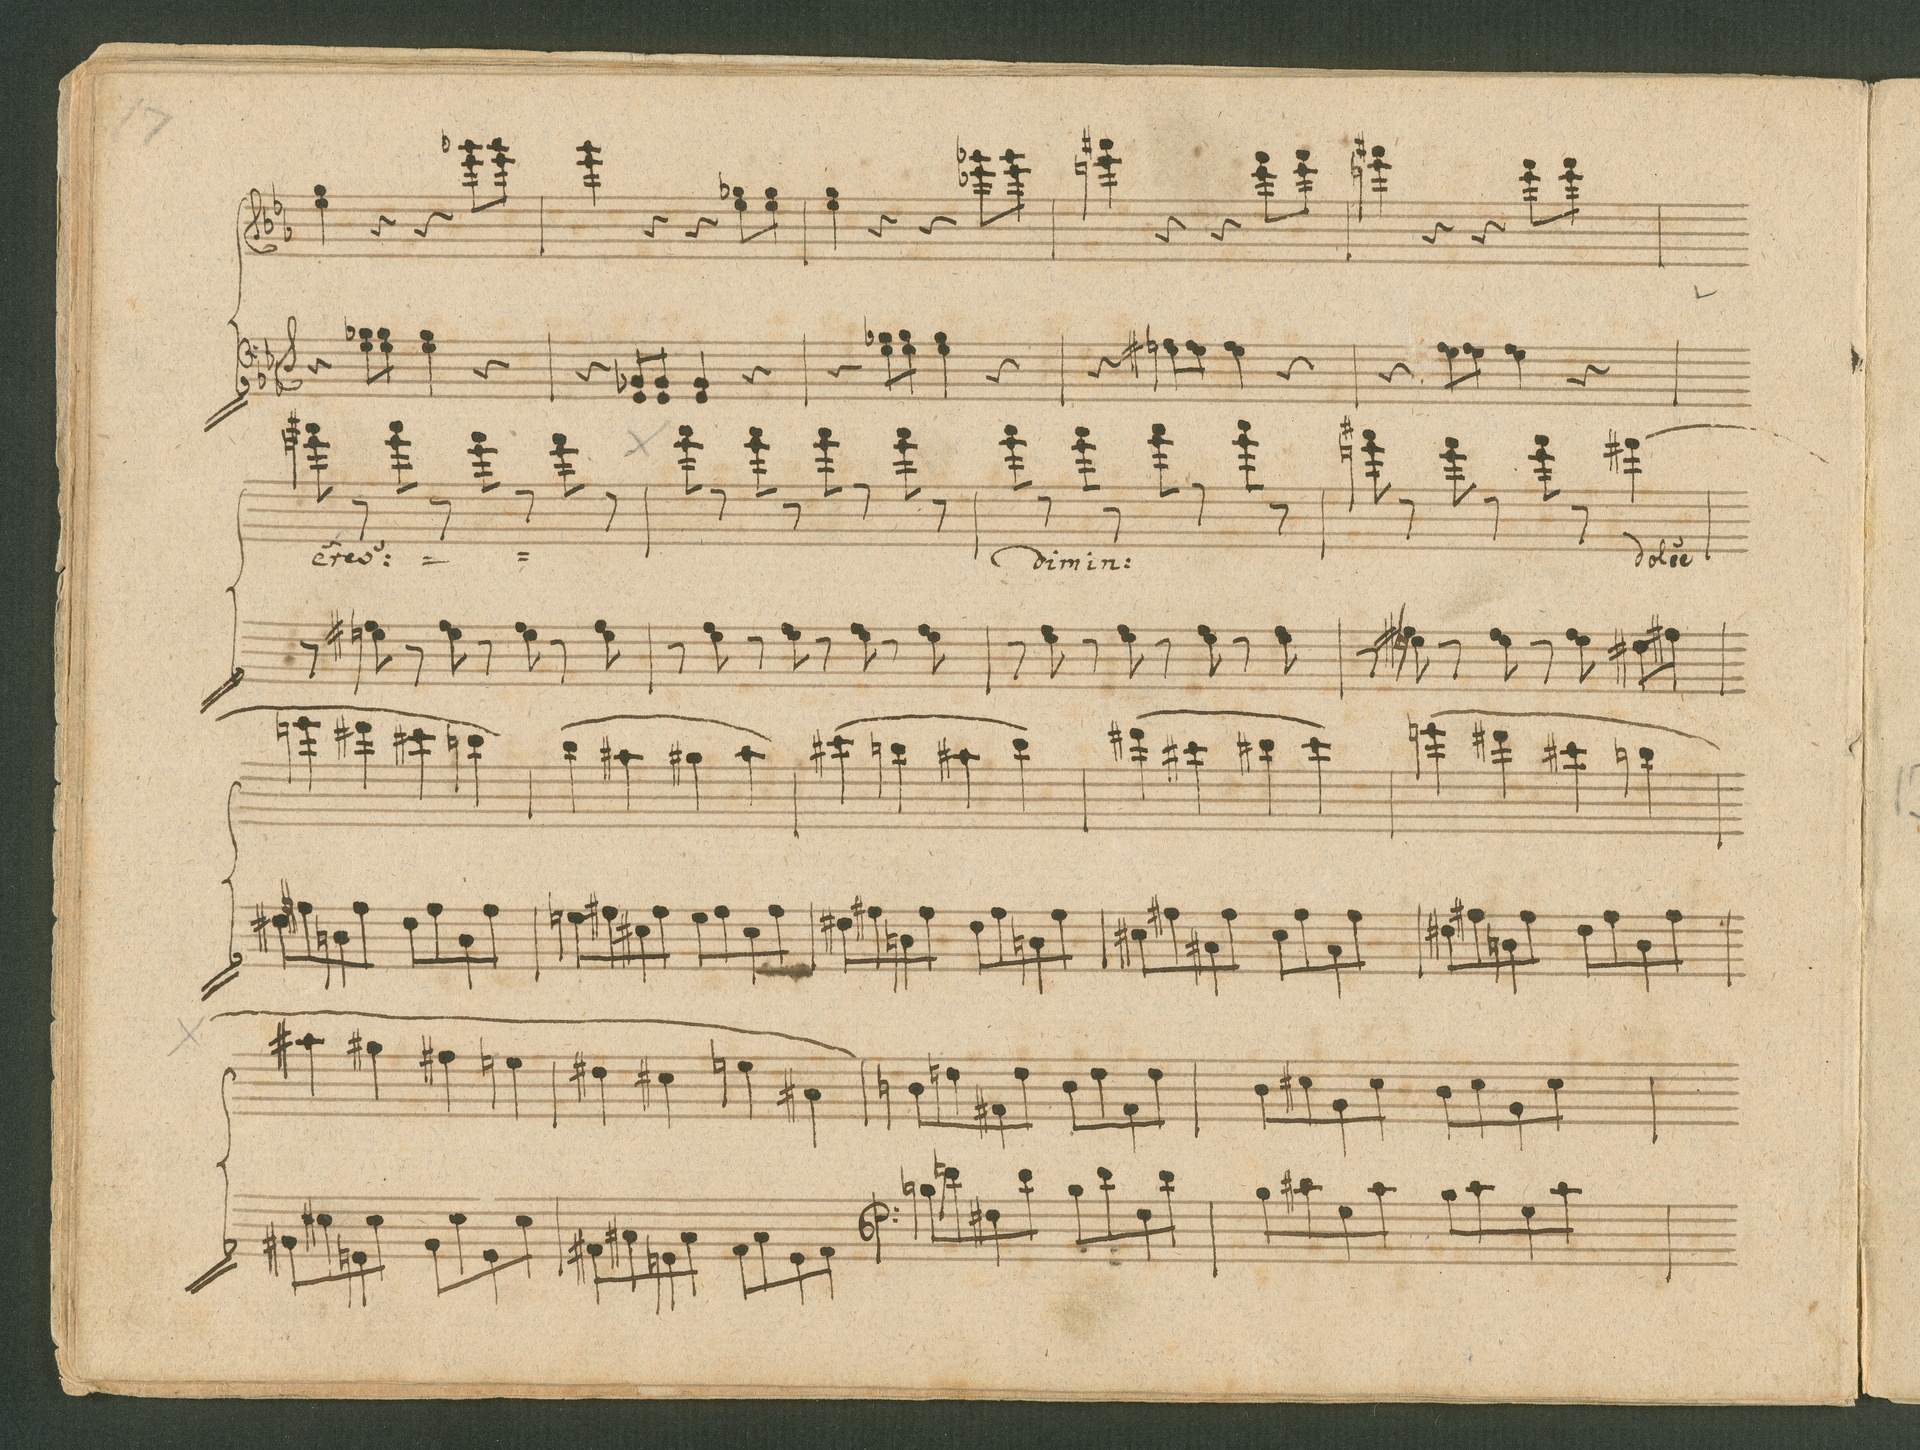 17
cresc: = =
dimin:
dolce